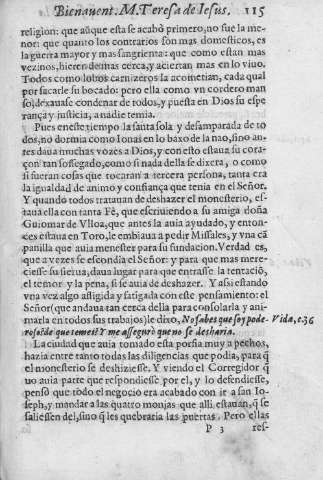 Bienauent. M. Teresa de Iesus. 115
religion: que aũque esta se acabò primero, no fue la me-
nor: que quanto los contrarios son mas domesticos, es
la guerra mayor y mas sangrienta: que como estan mas
vezinos, hieren de mas cerca, y aciertan mas en lo viuo.
Todos como lobos carnizeros la acometian, cada qual
por sacarle su bocado: pero ella como vn cordero man
so, dexauase condenar de todos, y puesta en Dios su espe
rança y justicia, a nadie temia.
Pues en este tiempo la santa sola y desamparada de to
dos, no dormia como Ionas en lo baxo de la nao, sino an-
tes daua muchas vozes a Dios, y con esto estaua su cora-
çon tan sossegado, como si nada della se dixera, o como
si fueran cosas que tocaran a tercera persona, tanta era
la igualdad de animo y confiança que tenia en el Señor.
Y quando todos tratauan de deshazer el monesterio, es-
taua ella con tanta Fè, que escriuiendo a su amiga doña
Guiomar de Vlloa, que antes la auia ayudado, y enton-
ces estaua en Toro, le embiaua a pedir Missales, y vna cã
panilla que auia menester para su fundacion. Verdad es,
que a vezes se escondia el Señor: y para que mas mere-
ciesse su sierua, daua lugar para que entrasse la tentaciõ,
el temor y la pena, si se auia de deshazer. Y assi estando
vna vez algo afligida y fatigada con este pensamiento: el
Señor (que andaua tan cerca della para consolarla y ani-
marla en todos sus trabajos) le dixo, No sabes que soy pode-
Vida, c. 36
roso? de que temes? Y me assegurò que no se desharia.
La ciudad que auia tomado esta porfia muy a pechos,
hazia entre tanto todas las diligencias que podia, para q̃
el monesterio se deshiziesse. Y viendo el Corregidor q̃
no auia parte que respondiesse por el, y lo defendiesse,
pensò que todo el negocio era acabado con ir a san Io-
seph, y mandar a las quatro monjas que alli estauan, q̃ se
saliessen del, sino q̃ les quebraria las puertas. Pero ellas
P 3 res-